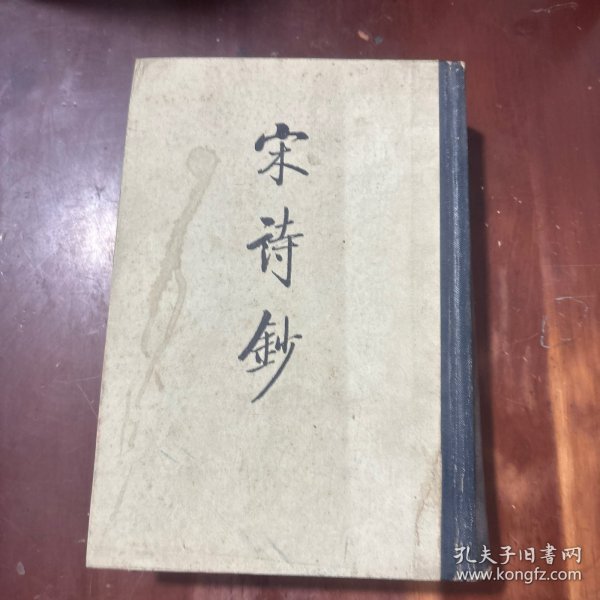 宋诗鈔
孔夫子旧書网
www.kongfz.com